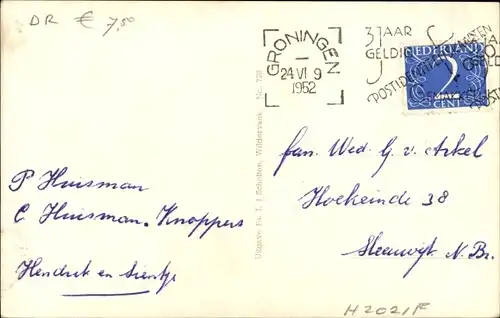 DR € 7,50
GRONINGEN
24 VI 9
1952
3 JAAR
GELDIG
POSTIDENTITEITSKAARTEN
NEDERLAND
2
CENT
Uitgave Fa. T. J. Scholten, Wildervank No. 728
P Huisman
C Huisman-Knoppers
Hendrik en Sientje
fam. Wed. G. v. Arkel
Hoekeinde 38
Sleeuwijk N. Br.
H2021F